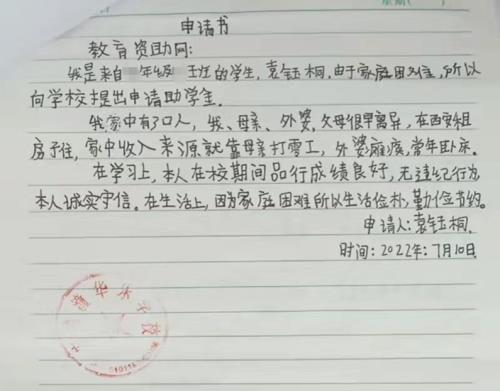 申请书
教育资助网:
我是来自 年级 班的学生,袁钰桐,由于家庭困难,所以
向学校提出申请助学金。
我家中有3口人,我、母亲、外婆,父母很早离异,在西贡租
房子住,家中收入来源就靠母亲打零工,外婆瘫痪,常年卧床。
在学习上,本人在校期间品行成绩良好,无违纪行为
本人诚实守信。在生活上,因为家庭困难所以生活俭朴,勤俭节约。
申请人:袁钰桐
时间:2022年:7月10日
清华大学